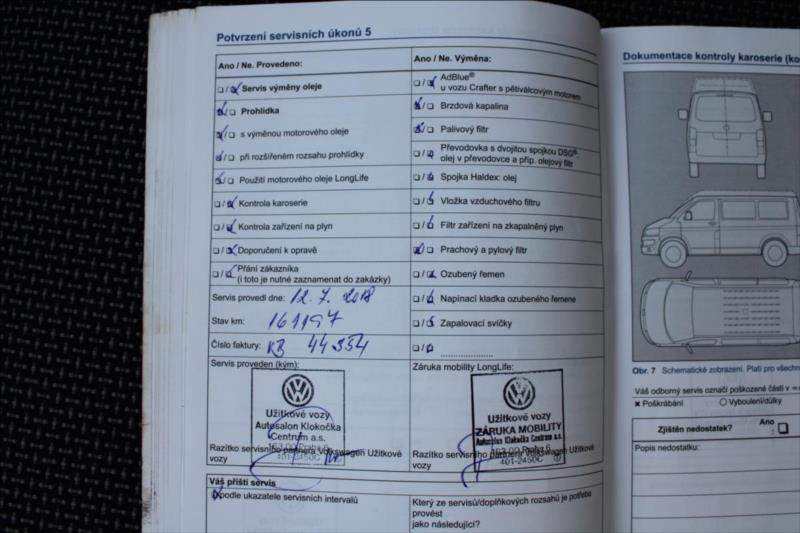 Potvrzení servisních úkonů 5
Ano / Ne. Provedeno:
Servis výměny oleje
Prohlídka
s výměnou motorového oleje
při rozšířeném rozsahu prohlídky
Použití motorového oleje LongLife
Kontrola karoserie
Kontrola zařízení na plyn
Doporučení k opravě
Přání zákazníka
(i toto je nutné zaznamenat do zakázky)
Servis provedl dne: 12. 7. 2018
Stav km: 161197
Číslo faktury: 44354
Servis proveden (kým):
Užitkové vozy
Autosalon Klokočka
Centrum a.s.
163 00 Praha 6
401-2450C
Razítko servisního partnera Volkswagen Užitkové
vozy
Váš příští servis
podle ukazatele servisních intervalů
Ano / Ne. Výměna:
AdBlue®
u vozu Crafter s pětiválcovým motorem
Brzdová kapalina
Palivový filtr
Převodovka s dvojitou spojkou DSG®:
olej v převodovce a příp. olejový filtr
Spojka Haldex: olej
Vložka vzduchového filtru
Filtr zařízení na zkapalněný plyn
Prachový a pylový filtr
Ozubený řemen
Napínací kladka ozubeného řemene
Zapalovací svíčky
Záruka mobility LongLife:
Užitkové vozy
ZÁRUKA MOBILITY
Autosalon Klokočka Centrum a.s.
163 00 Praha 6
401-2450C
Razítko servisního partnera Volkswagen Užitkové
vozy
Který ze servisů/doplňkových rozsahů je potřeba
provést
jako následující?
Dokumentace kontroly karoserie (ko
Obr. 7 Schematické zobrazení. Platí pro všechn
Váš odborný servis označí poškozené části v
Poškrábání
Vyboulení/důlky
Zjištěn nedostatek? Ano
Popis nedostatku: